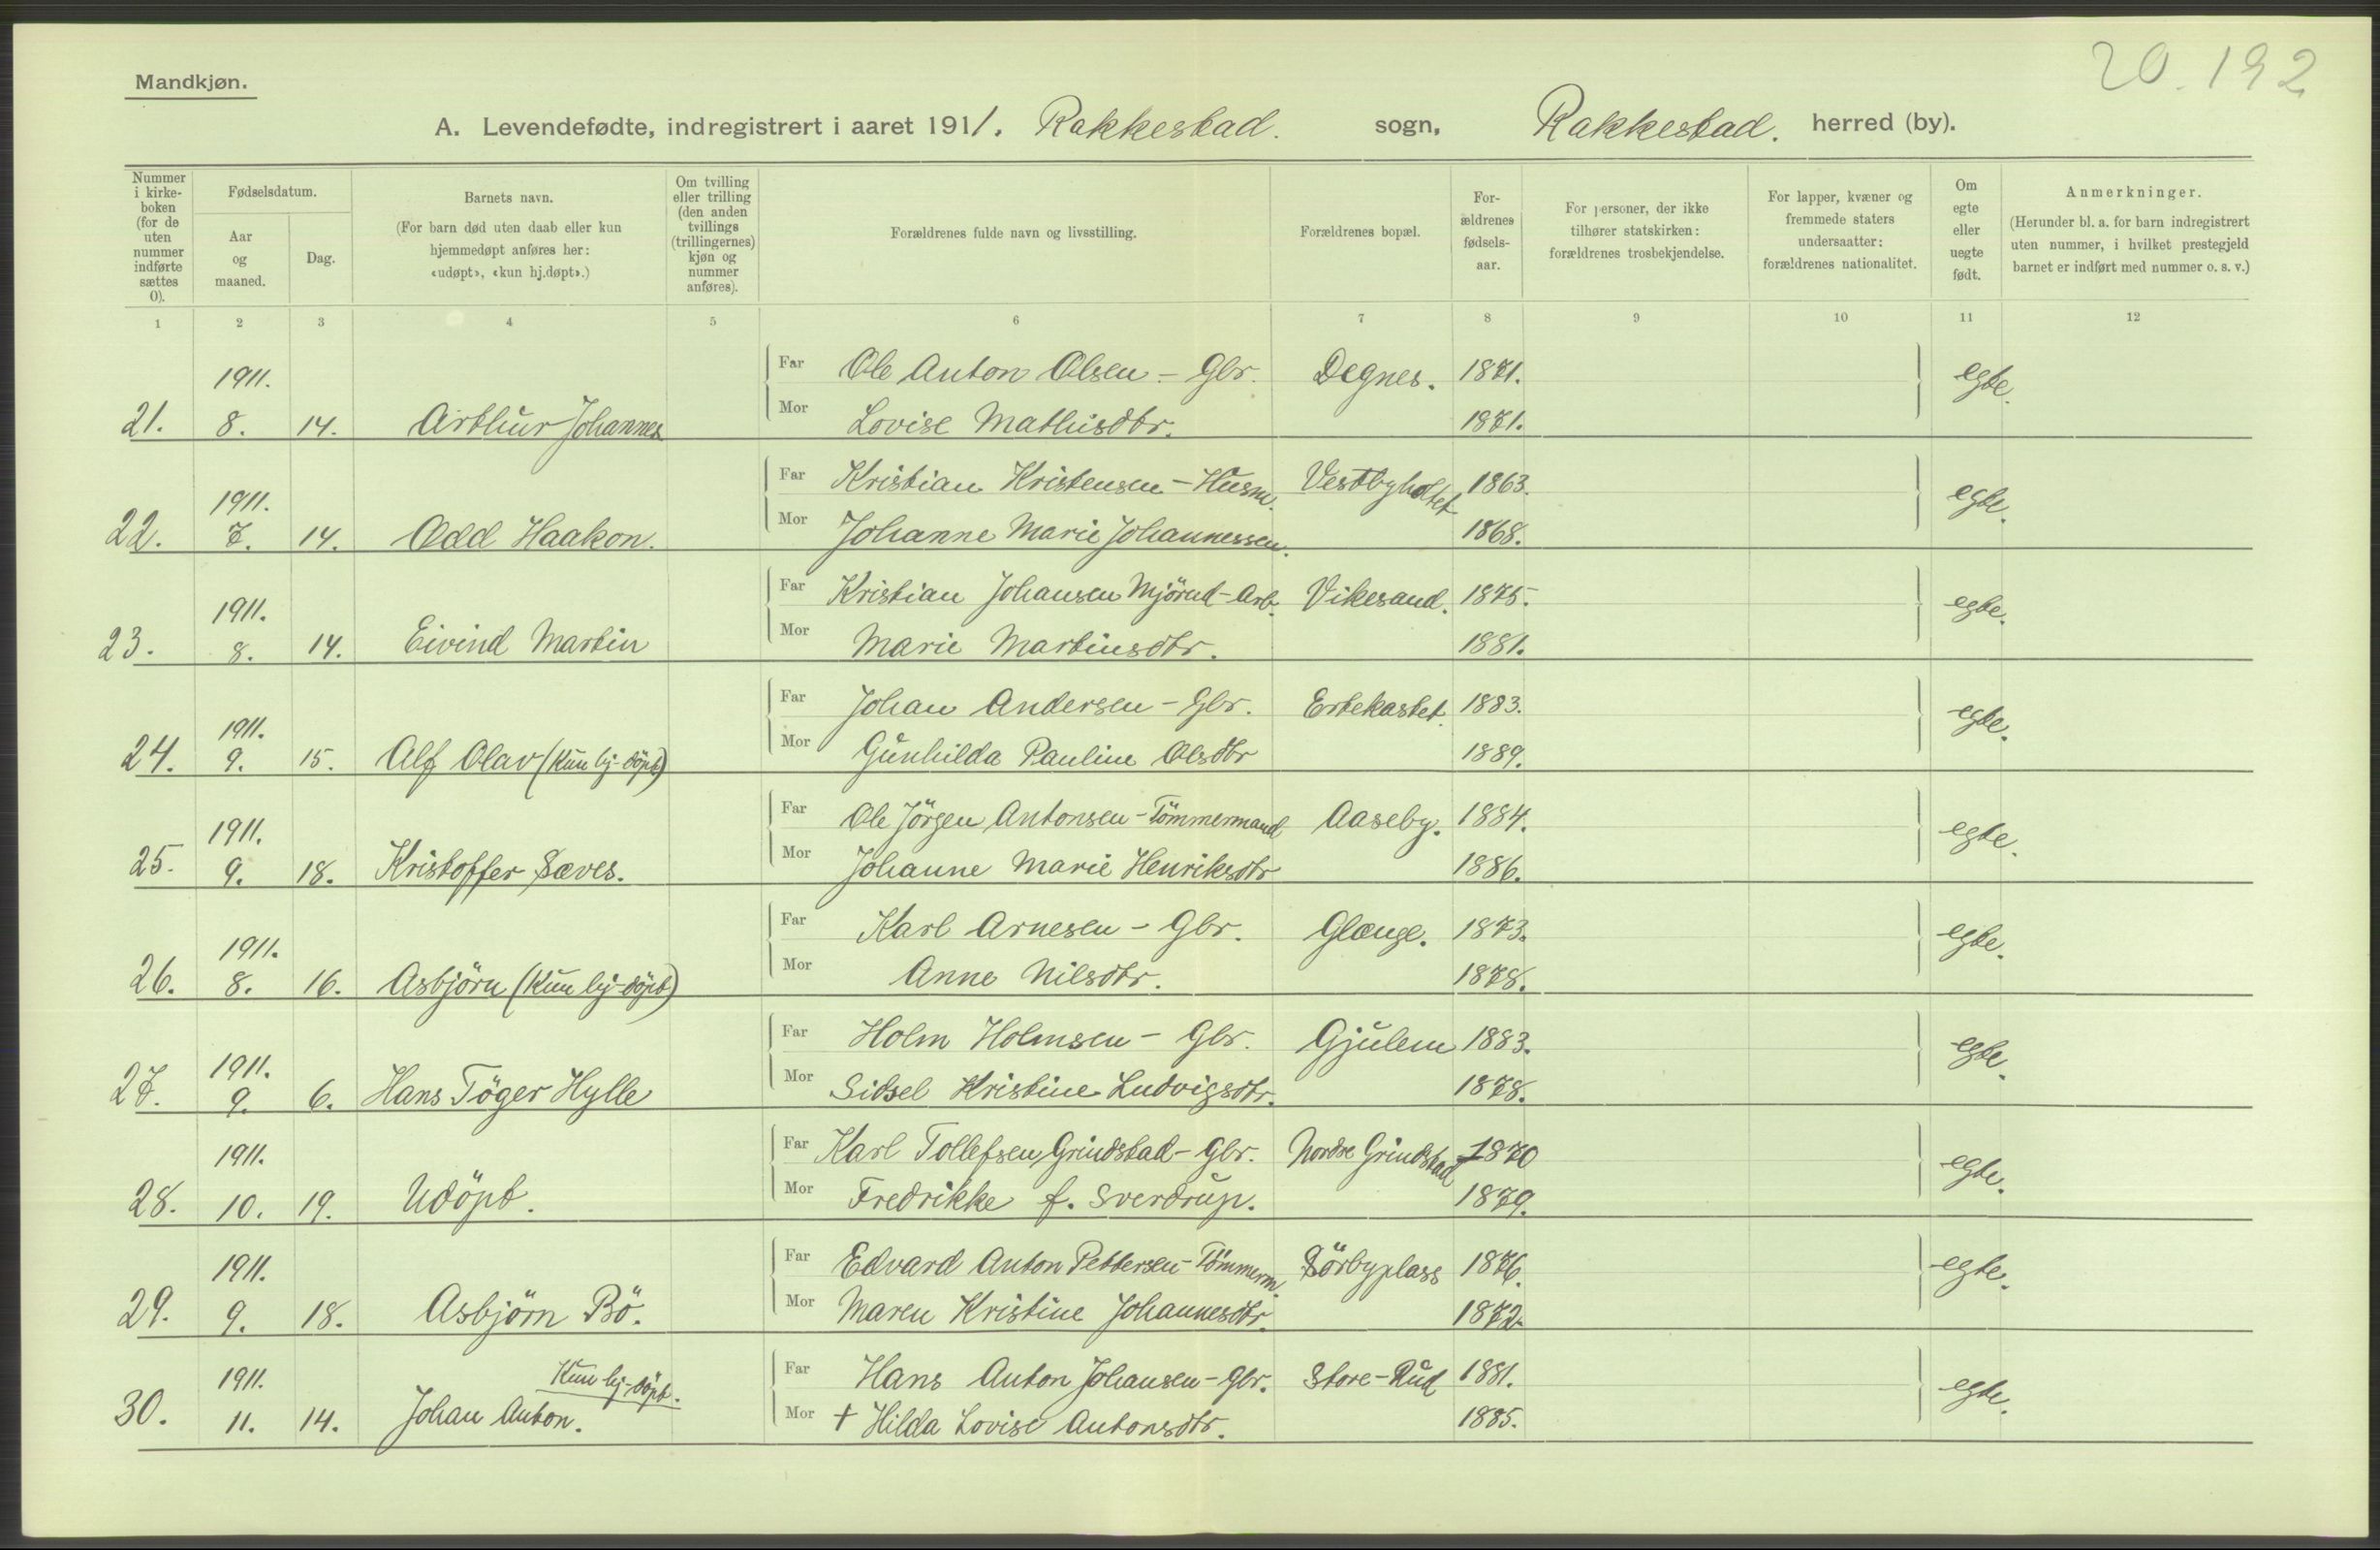 20.192
Mandkjøn.
A. Levendefødte, indregistrert i aaret 1911. Rakkestad. sogn, Rakkestad. herred (by).
Nummer i kirkeboken (for de uten nummer indførte sættes 0).
Fødselsdatum.
Aar og maaned.
Dag.
Barnets navn.
(For barn død uten daab eller kun hjemmedøpt anføres her: «udøpt», «kun hj.døpt».)
Om tvilling eller trilling (den anden tvillings (trillingernes) kjøn og nummer anføres).
Forældrenes fulde navn og livsstilling.
Forældrenes bopæl.
Forældrenes fødselsaar.
For personer, der ikke tilhører statskirken: forældrenes trosbekjendelse.
For lapper, kvæner og fremmede staters undersaatter: forældrenes nationalitet.
Om egte eller uegte født.
Anmerkninger.
(Herunder bl. a. for barn indregistrert uten nummer, i hvilket prestegjeld barnet er indført med nummer o. s. v.)
1 2 3 4 5 6 7 8 9 10 11 12
1911. Far Ole Anton Olsen - Gbr. Degnes. 1871. egte.
21. 8. 14. Arthur Johannes Mor Lovise Mathisdtr. 1871.
1911. Far Kristian Kristensen - Husm. Vestbyholtet 1863. egte.
22. 7. 14. Odd Haakon. Mor Johanne Marie Johannessen. 1868.
1911. Far Kristian Johansen Mjörud - Arb. Vikesand. 1875. egte.
23. 8. 14. Eivind Martin Mor Marie Martinsdtr. 1881.
1911. Far Johan Andersen - Gbr. Ertekastet. 1883. egte.
24. 9. 15. Alf Olav (Kun hj-döpt) Mor Gunhilda Pauline Olsdtr 1889.
1911. Far Ole Jörgen Antonsen - Tömmermand Aaseby. 1884. egte.
25. 9. 18. Kristoffer Sæves. Mor Johanne Marie Henriksdtr 1886.
1911. Far Karl Arnesen - Gbr. Glænge. 1873. egte.
26. 8. 16. Asbjörn (Kun hj-döpt) Mor Anne Nilsdtr. 1878.
1911. Far Holm Holmsen - Gbr. Gjulem 1883. egte.
27. 9. 6. Hans Töger Hylle Mor Sidsel Kristine Ludvigsdtr. 1878.
1911. Far Karl Tollefsen Grindstad - Gbr. Nordre Grindstad 1870 egte.
28. 10. 19. Udöpt. Mor Fredrikke f. Sverdrup. 1879.
1911. Far Edvard Anton Pettersen - Tömmerm. Sörbyplass 1876. egte.
29. 9. 18. Asbjörn Bö. Mor Maren Kristine Johannesdtr. 1872.
1911. Kun hj-döpt. Far Hans Anton Johansen - Gbr. Store-Rud 1881. egte.
30. 11. 14. Johan Anton. Mor + Hilda Lovise Antonsdtr. 1885.